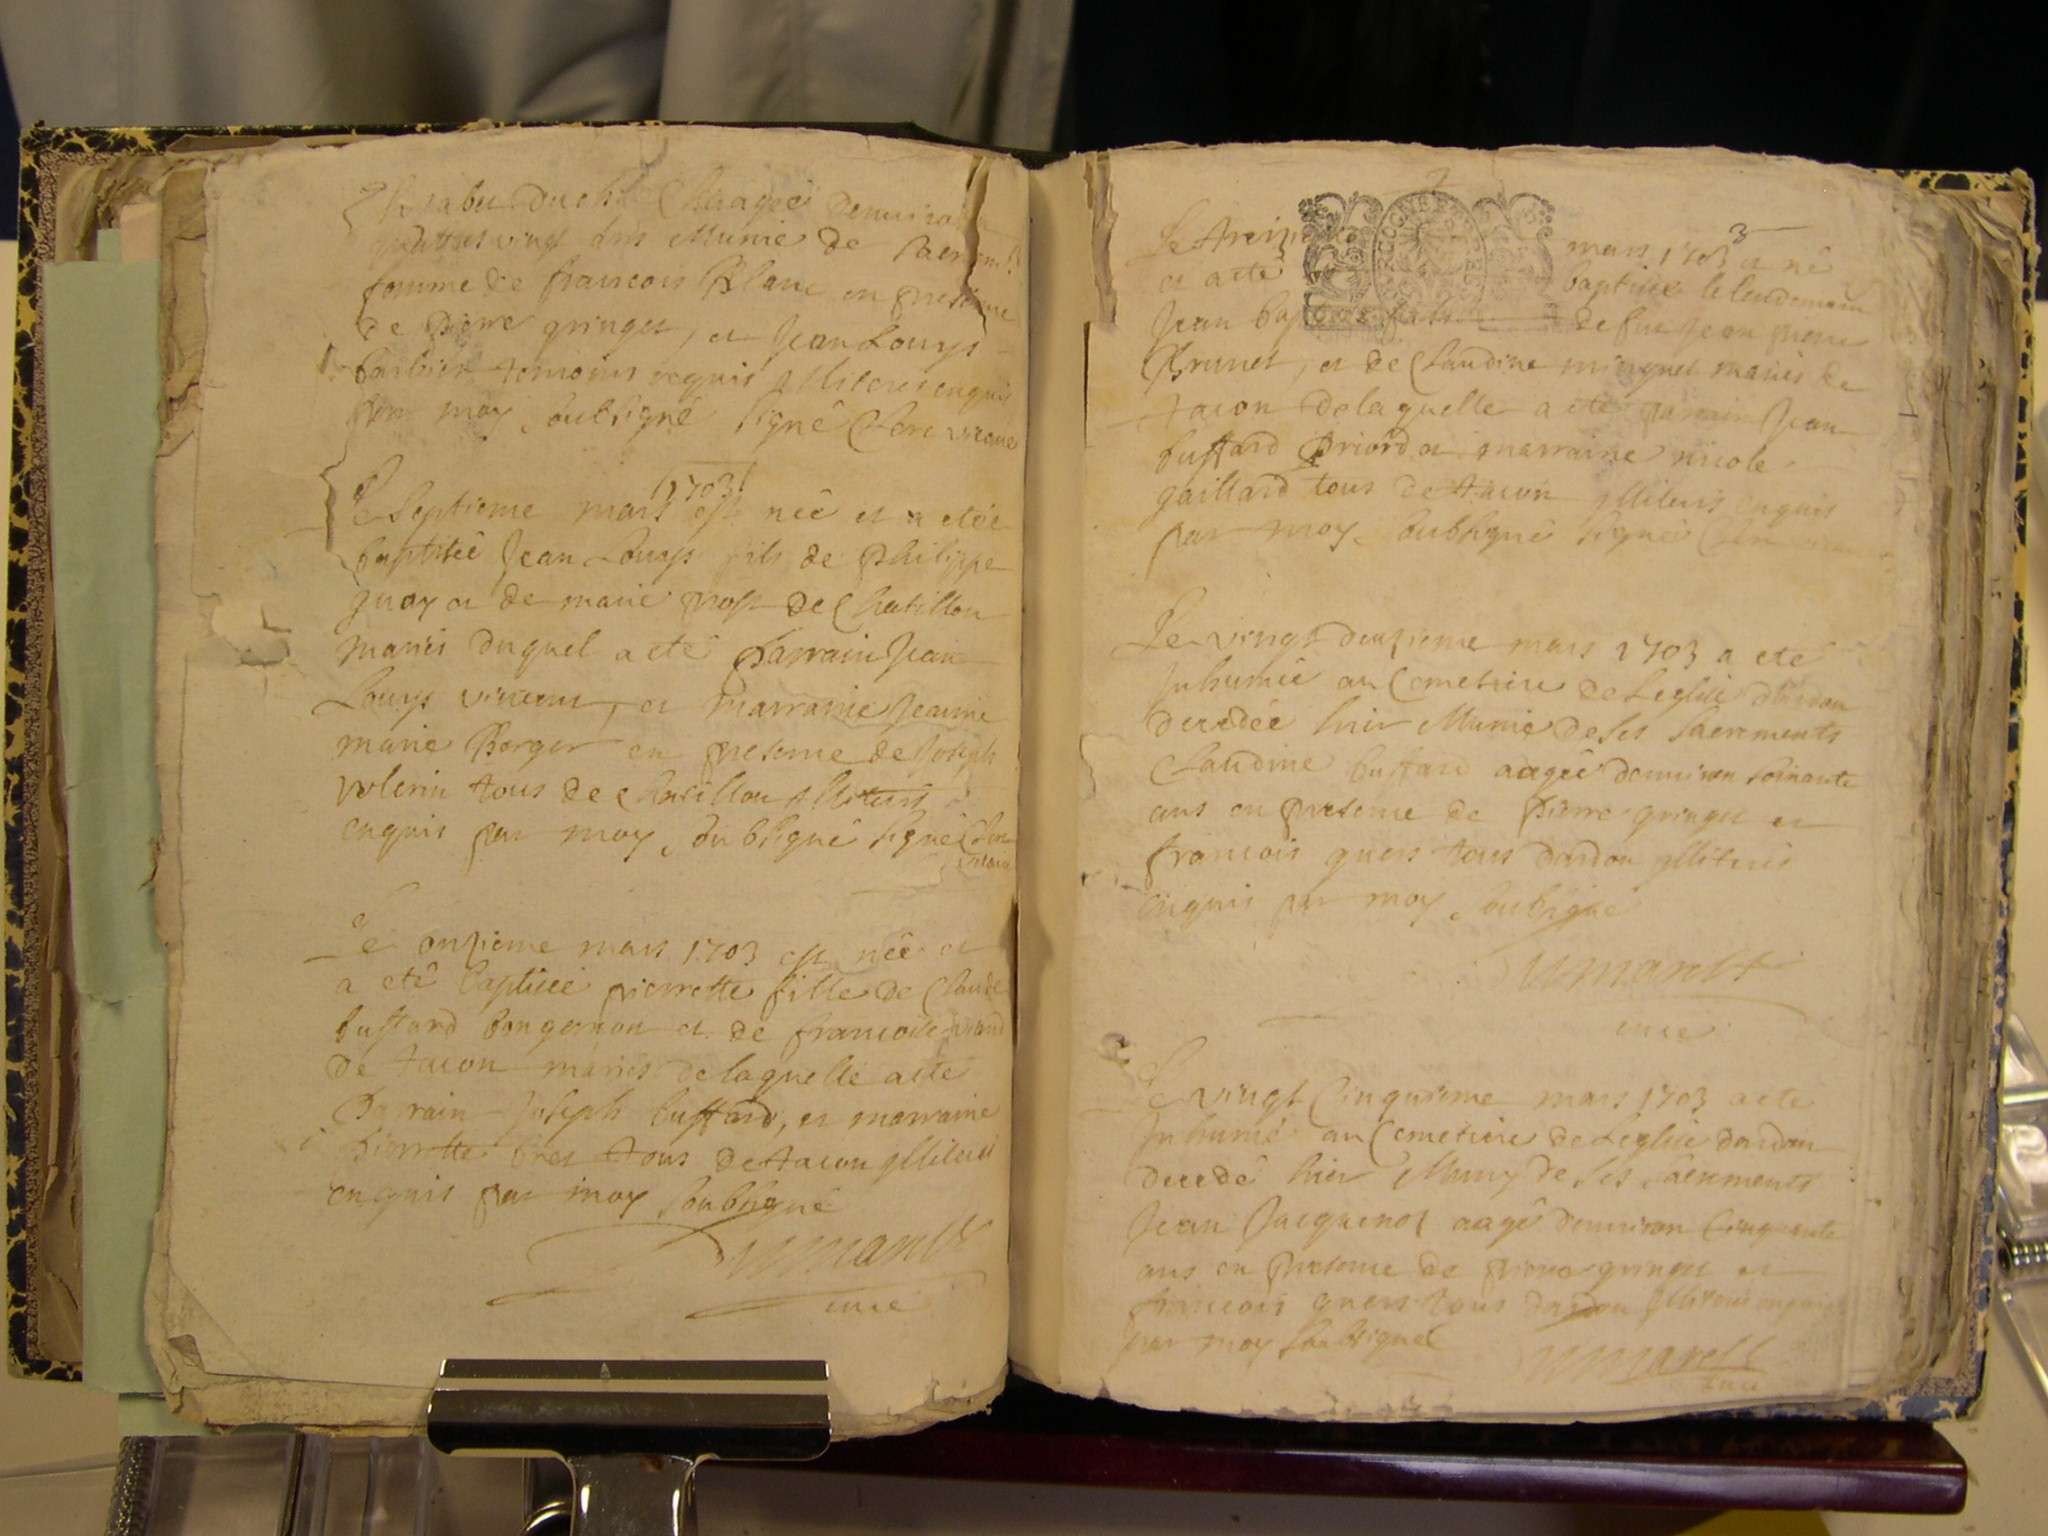 aagée
quattres vingt ans Munie de
femme de francois Blanc en presence
de pierre gringet, et Jean Louys
temoins requis illiteres enquis
par moy soubsigné signé Clere vicaire
1703
Le septieme mars est née et a etée
baptisée Jean Louys fils de philippe
guay et de marie prost de Chatillon
mariés duquel a eté parrain Jean
Louys vincent, et marraine Jeanne
marie Berger en presence de Joseph
tous de chatillon illiterés
enquis par moy soubsigné signé Clere
vicaire
Le onzieme mars 1703 est née et
a eté baptisée pierrette fille de Claude
buffard bongernon et de francoise
de tacon mariés de laquelle a eté
Parrain Joseph buffard, et marraine
pierrette tous de tacon illiterés
enquis par moy soubsigné
curé
3
Le mars 1703 est né
et a eté baptisée le lendemain
Jean fils de feu Jean pierre
Brunet, et de Claudine mariés de
tacon de laquelle a eté parrain Jean
buffard et marraine nicole
gaillard tous de tacon illiteris enquis
par moy soubsigné signé Clere
Le vingt deuzieme mars 1703 a eté
Inhumée au Cemetiere de Leglise dardon
decedée hier Munie de ses sacrements
Claudine buffard aagée denviron soixante
ans en presence de pierre gringet et
francois guers tous dardon illiterés
enquis par moy soubsigné
curé
Le vingt Cinquieme mars 1703 a eté
Inhumé au Cemetiere de Leglise dardon
decedé hier Muny de ses sacrements
Jean Jacquenot aagé denviron Cinquante
ans en presence de pierre gringet et
francois guers tous dardon illiteres enquis
par moy soubsigné
curé